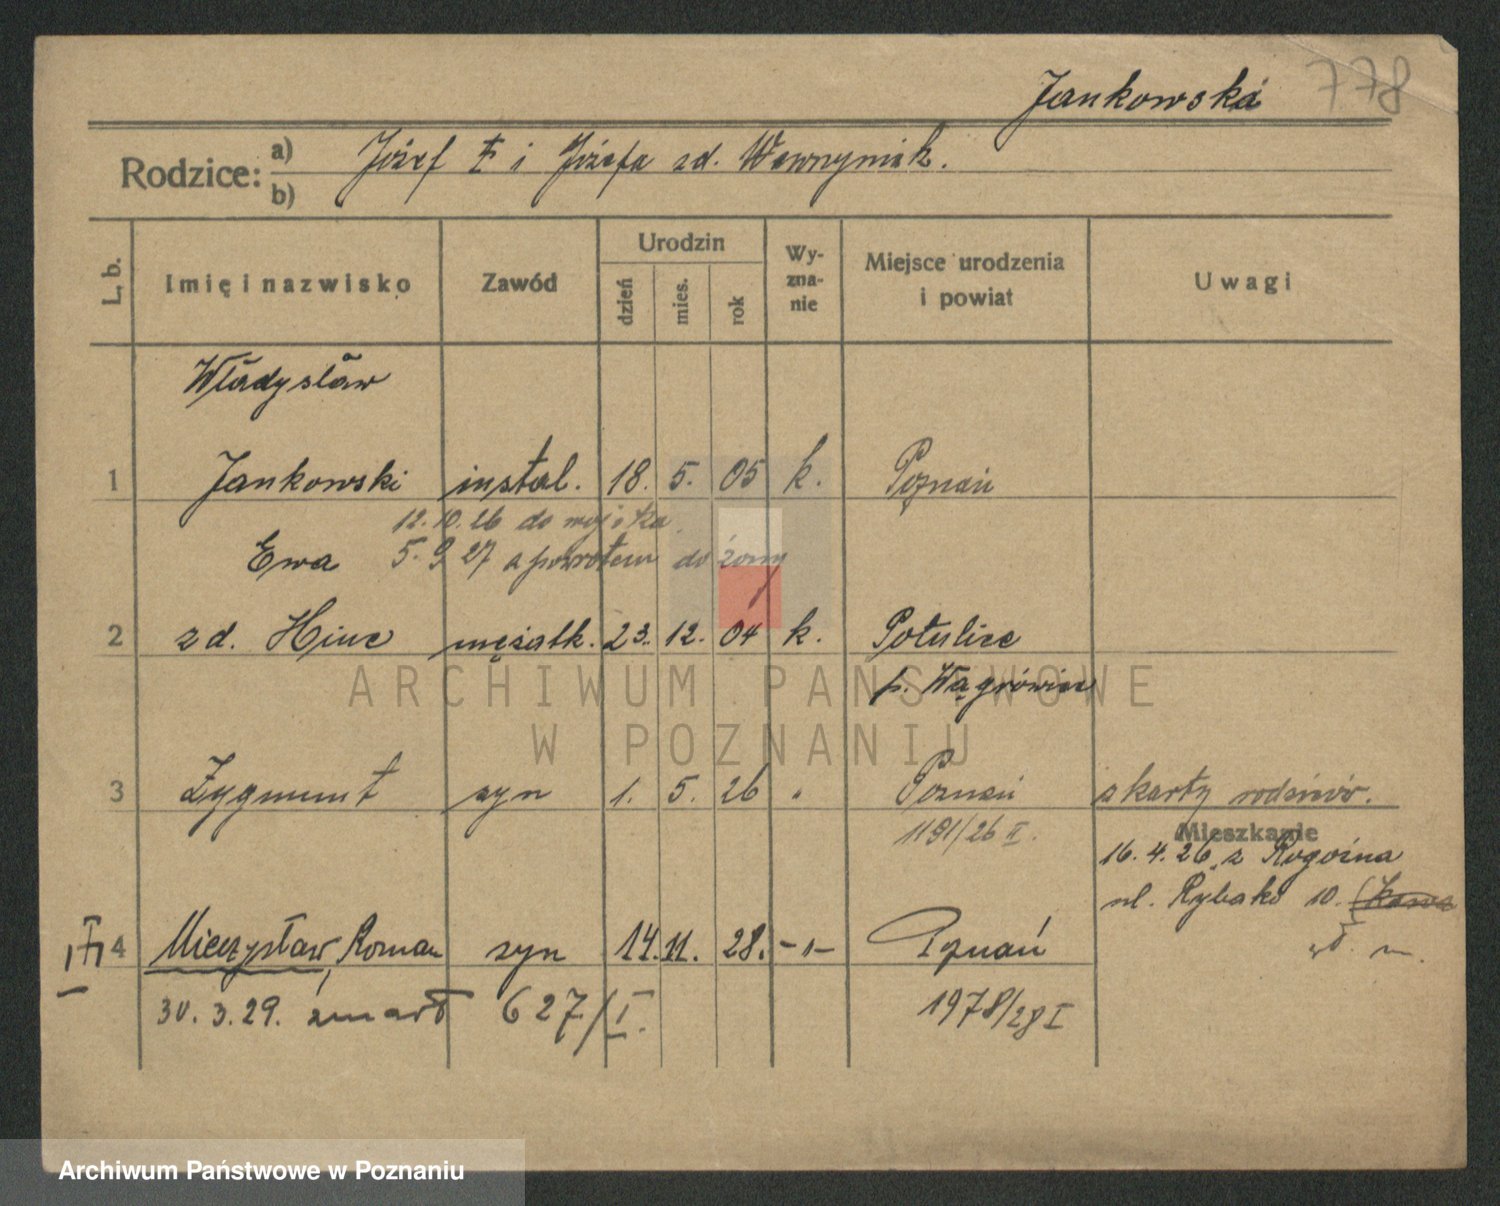 Jankowska 778
Rodzice: a) Józef i Józefa zd. Wawrzyniak.
b)
L. b. Imię i nazwisko Zawód Urodzin dzień mies. rok Wyznanie Miejsce urodzenia i powiat Uwagi
Władysław
1 Jankowski instal. 18. 5. 05 k. Poznań
12.10.26 do wojska
Ewa 5.9 27 z powrotem do żony
2 zd. Hinc mężatk. 23. 12. 04 k. Potulice
p. Wągrówiec
3 Zygmunt syn 1. 5. 26 " Poznań z karty rodziców.
1191/26 II. Mieszkanie
16.4.26 z Rogoźna
ul. Rybaki 10.
4 Mieczysław, Roman syn 14. 11. 28. -"- Poznań
30.3.29. zmarł 627/I. 1978/28 I
ARCHIWUM PAŃSTWOWE
W POZNANIU
Archiwum Państwowe w Poznaniu